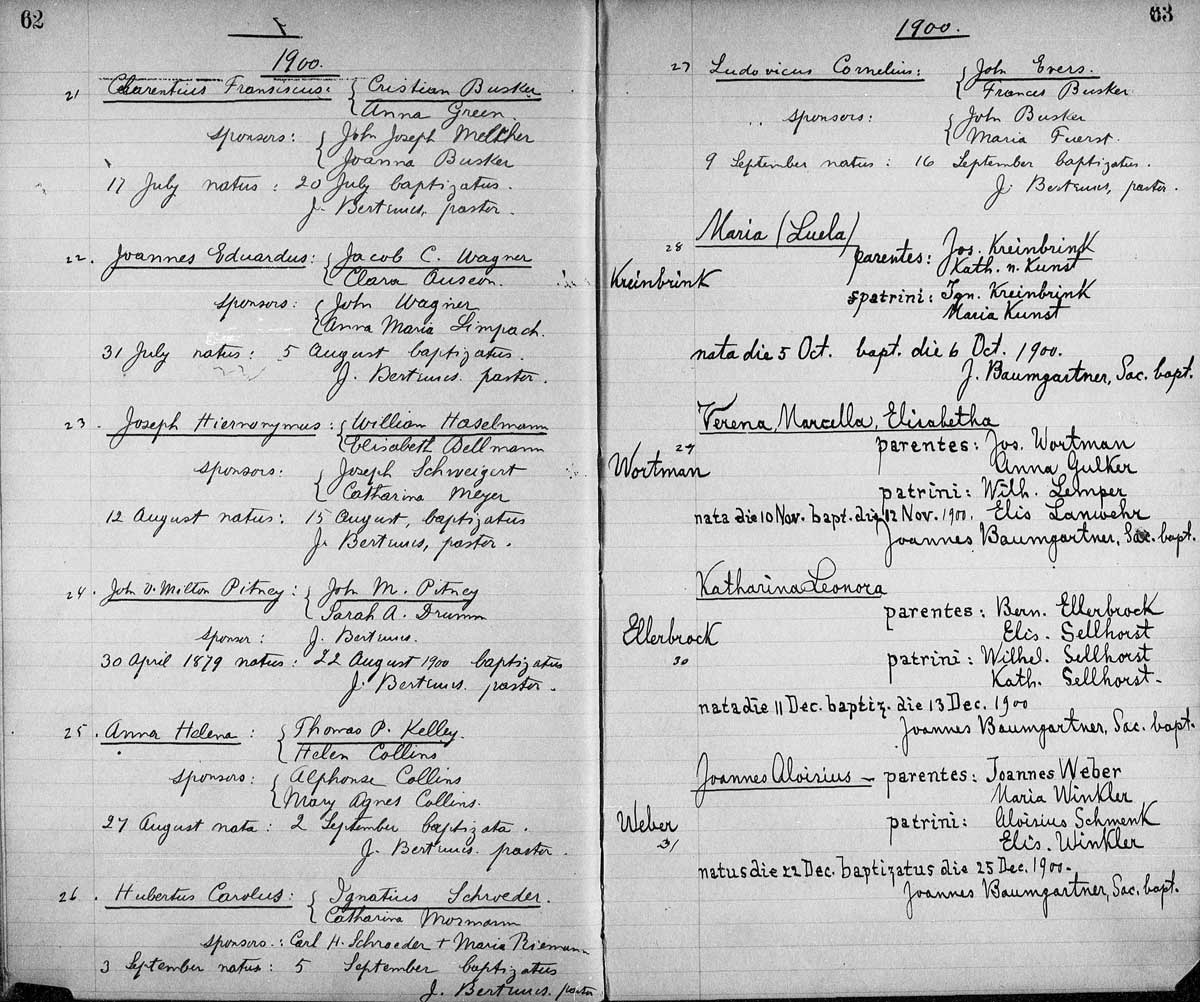 62
1900.
21 Clarentius Fransiscus: { Cristian Busker
Anna Green.
sponsors: { John Joseph Melcher
Joanna Busker
17 July natus: 20 July baptizatus.
J. Bertunes, pastor.
22. Joannes Eduardus: { Jacob C. Wagner
Clara
sponsors: { John Wagner
Anna Maria Limpach.
31 July natus: 5 August baptizatus.
J. Bertunes. pastor.
23. Joseph Hieronymus: { William Haselmann
Elisabeth Bellmann
sponsors: { Joseph Schweigert
Catharina Meyer
12 August natus: 15 August, baptizatus
J. Bertunes, pastor.
24. John V. Milton Pitney: { John M. Pitney
Sarah A. Drumm
sponsor: J. Bertunes.
30 April 1879 natus: 22 August 1900 baptizatus
J. Bertunes. pastor.
25. Anna Helena: { Thomas P. Kelley.
Helen Collins
sponsors: { Alphonse Collins
Mary Agnes Collins.
27 August nata: 2 September baptizata.
J. Bertunes. pastor.
26. Hubertus Carolus: { Ignatius Schroeder.
Catharina Mormann
sponsors.: Carl H. Schroeder + Maria Riemann
3 September natus: 5 September baptizatus
J. Bertunes. pastor
63
1900.
27 Ludovicus Cornelius: { John Evers.
Frances Busker
sponsors: { John Busker
Maria Fuerst.
9 September natus: 16 September baptizatus.
J. Bertunes, pastor.
Maria (Luela)
28 parentes: Jos. Kreinbrink
Kreinbrink Kath. n. Kunst
patrini: Ign. Kreinbrink
Maria Kunst
nata die 5 Oct. bapt. die 6 Oct. 1900.
J. Baumgartner, Sac. bapt.
Verena, Marcella, Elisabetha
29 parentes: Jos. Wortman
Wortman Anna Gulker
patrini: Wilh. Lemper
nata die 10 Nov. bapt. die 12 Nov. 1900. Elis Lanwehr
Joannes Baumgartner, Sac. bapt.
Katharina Leonora
parentes: Bern. Ellerbrock
Ellerbrock Elis. Sellhorst
30 patrini: Wilhel. Sellhorst
Kath. Sellhorst-
nata die 11 Dec. baptiz. die 13 Dec. 1900
Joannes Baumgartner, Sac. bapt.
Joannes Aloisius - parentes: Joannes Weber
Maria Winkler
Weber patrini: Aloisius Schmenk
31 Elis. Winkler
natus die 22 Dec. baptizatus die 25 Dec. 1900-
Joannes Baumgartner, Sac. bapt.